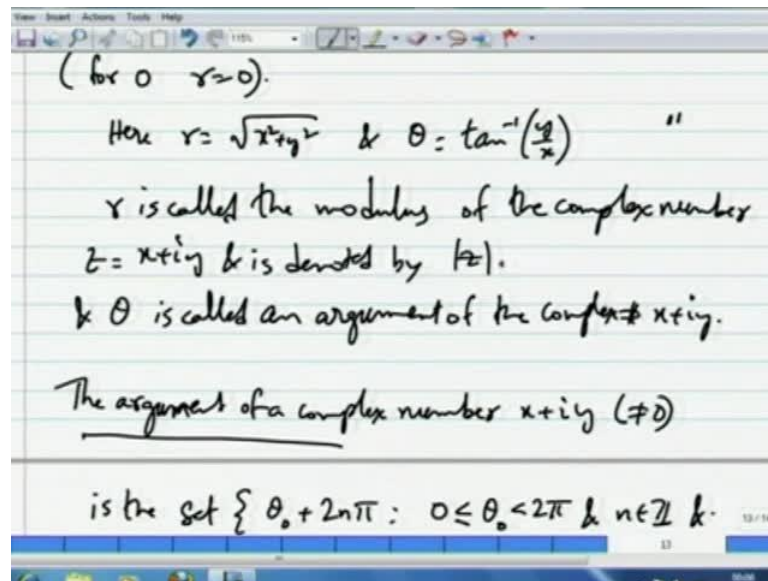 View Insert Actions Tools Help
115%
(for 0 r=0).
Here r = √x²+y² & θ = tan⁻¹(y/x) "
r is called the modulus of the complex number
z = x+iy & is denoted by |z|.
& θ is called an argument of the complex # x+iy.
The argument of a complex number x+iy (≠0)
is the set { θ₀ + 2nπ : 0 ≤ θ₀ < 2π & n∈ℤ &.
13/14
13